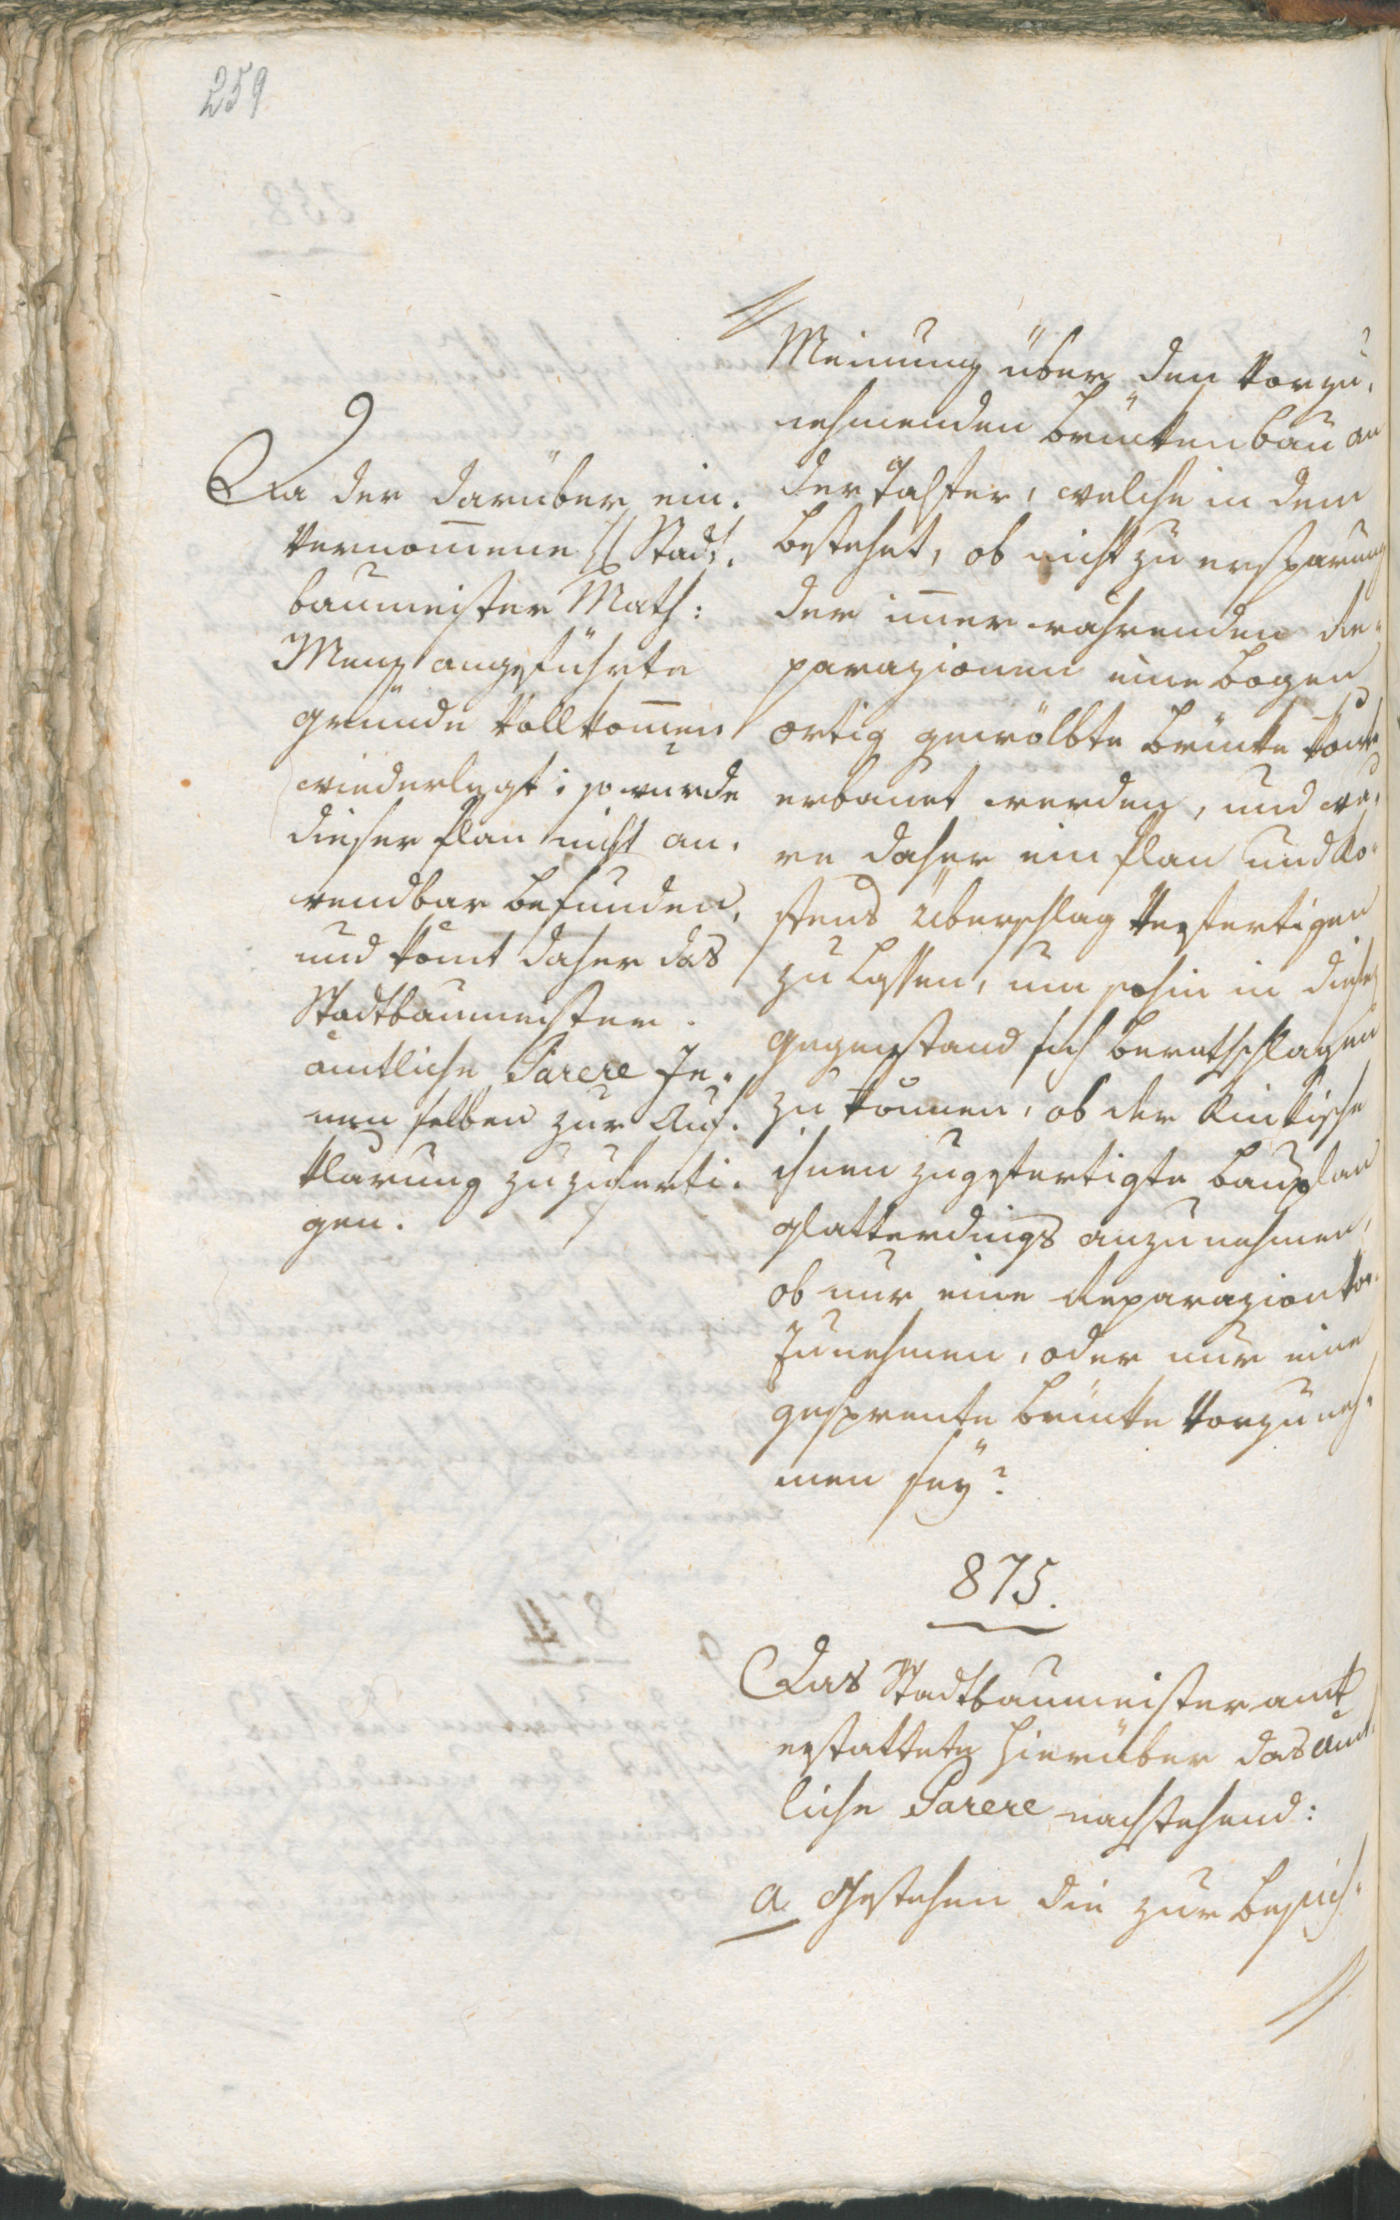 259
Da der darüber ein-
vernom̅ene H Stadt-
baumeister Math:
Menz angeführte
gründe Vollkom̅en
wiederlegt; so wurde
dieser plan nicht an-
wendbar befunden,
und kömt daher das
Stadtbaumeister-
ämtliche Parere Je-
nen selben zur Auf-
klärung zuzuferti-
gen.
Meinung über den Vorzu-
nehmenden brückenbau an
der Talfer, welche in dem
bestehet, ob nicht zu ersparung
der im̅erwährenden Re-
parazionen eine bogen
artig gewölbte brücke könte
erbauet werden, und wä-
re daher ein plan und Ko-
stens Überschlag Verfertigen
zu lassen, um sohin in diesem
gegenstand sich berathschlagen
zu können, ob der
ihnen zugefertigte bauplan
glatterdings anzunehmen,
ob nur eine Reparazion Vor-
zunehmen, oder nur eine
gesprengte brücke Vorzuneh-
men seÿ?
875.
Das Stadtbaumeisteramt
erstattete hierüber das amt-
liche Parere nachstehend:
a Gestehen die zur besich-